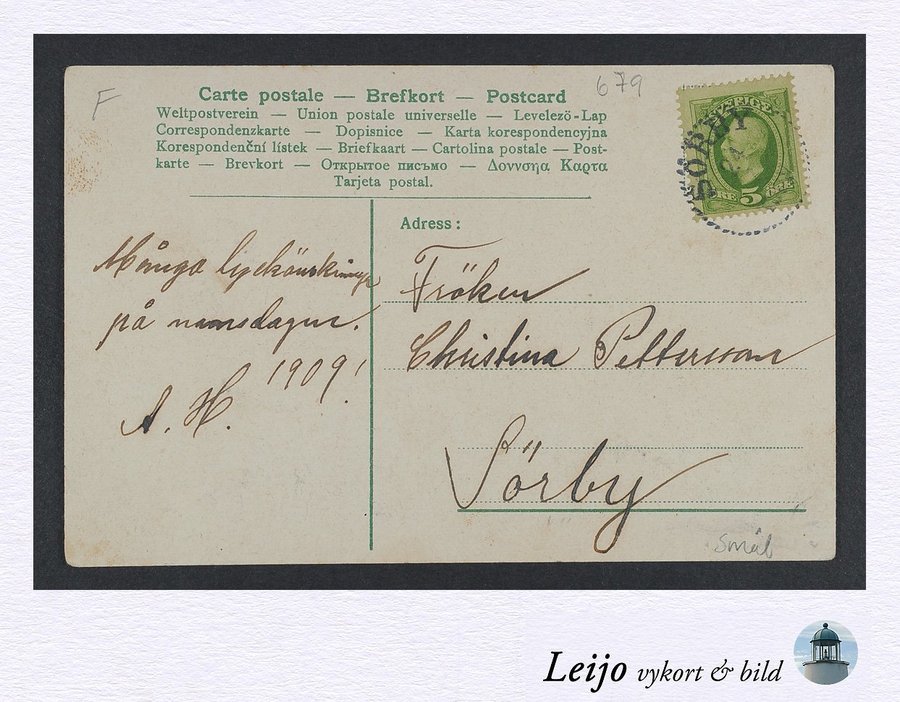 F
679
Carte postale — Brefkort — Postcard
Weltpostverein — Union postale universelle — Levelező-Lap
Correspondenzkarte — Dopisnice — Karta korespondencyjna
Korespondenční lístek — Briefkaart — Cartolina postale — Post-
karte — Brevkort — Открытое письмо — Δοννσηα Καρτα
Tarjeta postal.
SVERIGE
SÖRBY
5
ÖRE
Adress:
Många lyckönskningar
på namsdagen.
1909!
A. H.
Fröken
Christina Pettersson
Sörby
Småh
Leijo vykort & bild